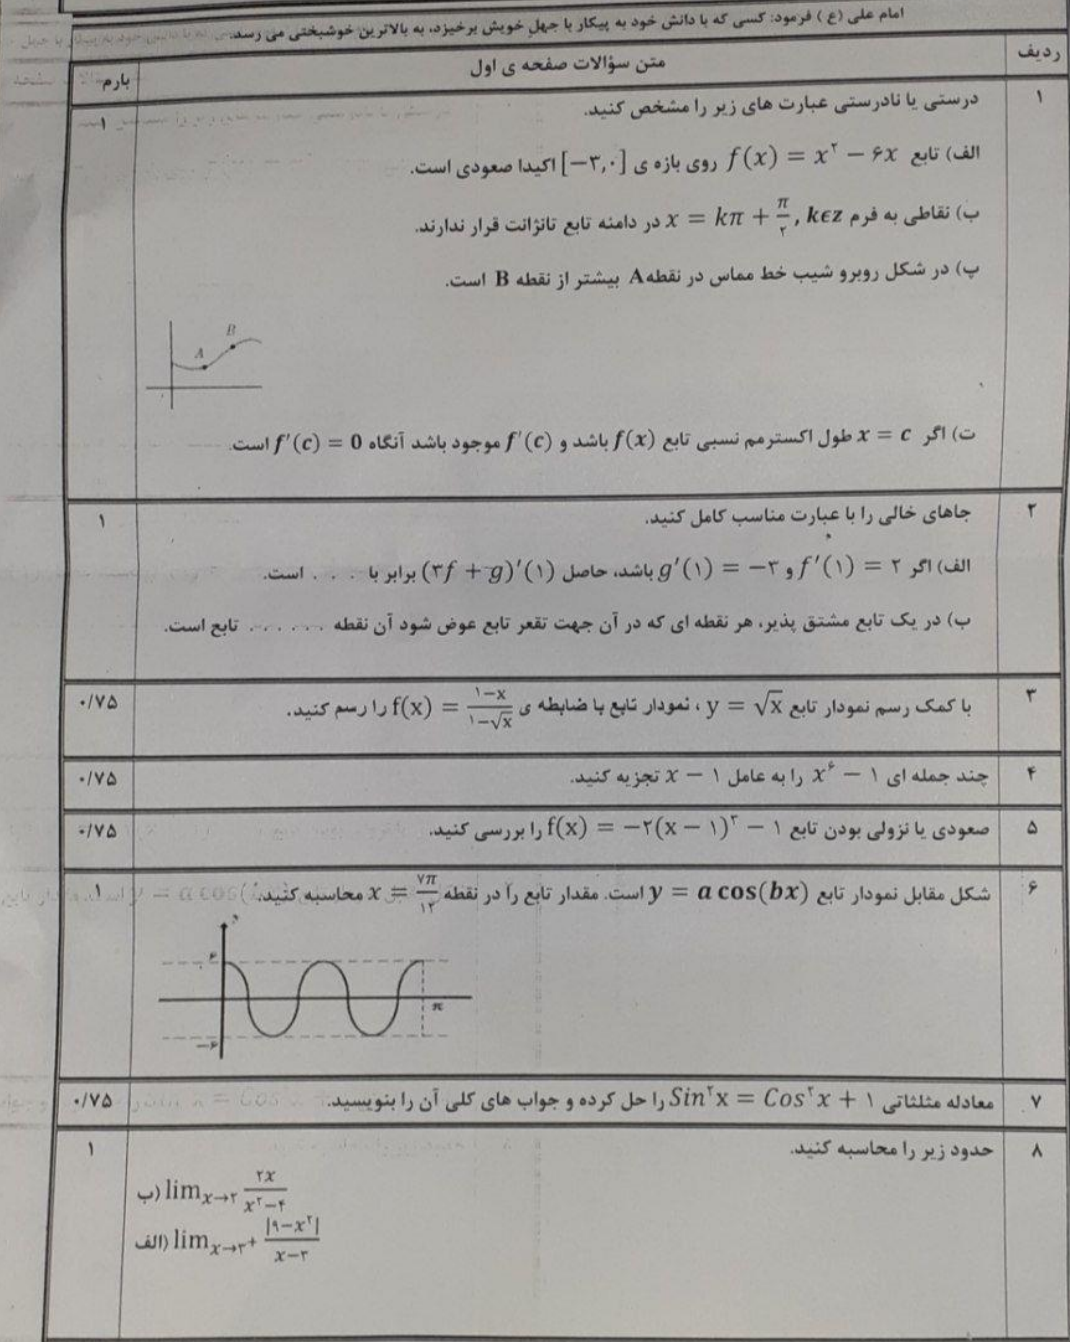 امام علی (ع) فرمود: کسی که با دانش خود به پیکار با جهل خویش برخیزد، به بالاترین خوشبختی می رسد.
ردیف متن سؤالات صفحه ی اول بارم
۱ درستی یا نادرستی عبارت های زیر را مشخص کنید. ۱
الف) تابع f(x) = x² − ۶x روی بازه ی [−۳,۰] اکیدا صعودی است.
ب) نقاطی به فرم x = kπ + π/۲ , kϵz در دامنه تابع تانژانت قرار ندارند.
پ) در شکل روبرو شیب خط مماس در نقطه A بیشتر از نقطه B است.
B
A
ت) اگر x = c طول اکسترمم نسبی تابع f(x) باشد و f′(c) موجود باشد آنگاه f′(c) = 0 است.
۲ جاهای خالی را با عبارت مناسب کامل کنید. ۱
الف) اگر f′(۱) = ۲ و g′(۱) = −۳ باشد، حاصل (۳f + g)′(۱) برابر با . . . . است.
ب) در یک تابع مشتق پذیر، هر نقطه ای که در آن جهت تقعر تابع عوض شود آن نقطه . . . . . . تابع است.
۳ با کمک رسم نمودار تابع y = √x ، نمودار تابع با ضابطه ی f(x) = (۱−x)/(۱−√x) را رسم کنید. ۰/۷۵
۴ چند جمله ای x⁶ − ۱ را به عامل x − ۱ تجزیه کنید. ۰/۷۵
۵ صعودی یا نزولی بودن تابع f(x) = −۲(x − ۱)³ − ۱ را بررسی کنید. ۰/۷۵
۶ شکل مقابل نمودار تابع y = a cos(bx) است. مقدار تابع را در نقطه x = ۷π/۱۲ محاسبه کنید. ۱
π
−۶
۷ معادله مثلثاتی Sin²x = Cos²x + ۱ را حل کرده و جواب های کلی آن را بنویسید. ۰/۷۵
۸ حدود زیر را محاسبه کنید. ۱
ب) lim x→۲ ۲x/(x²−۴)
الف) lim x→۳⁺ |۹−x²|/(x−۳)